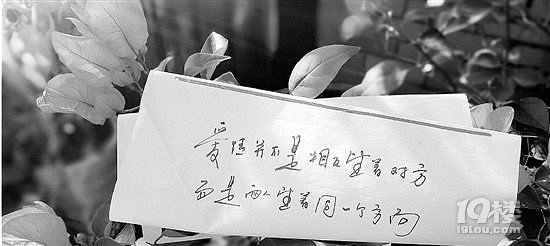 爱情并不是相互望着对方
而是两人望着同一个方向
19楼
19lou.com